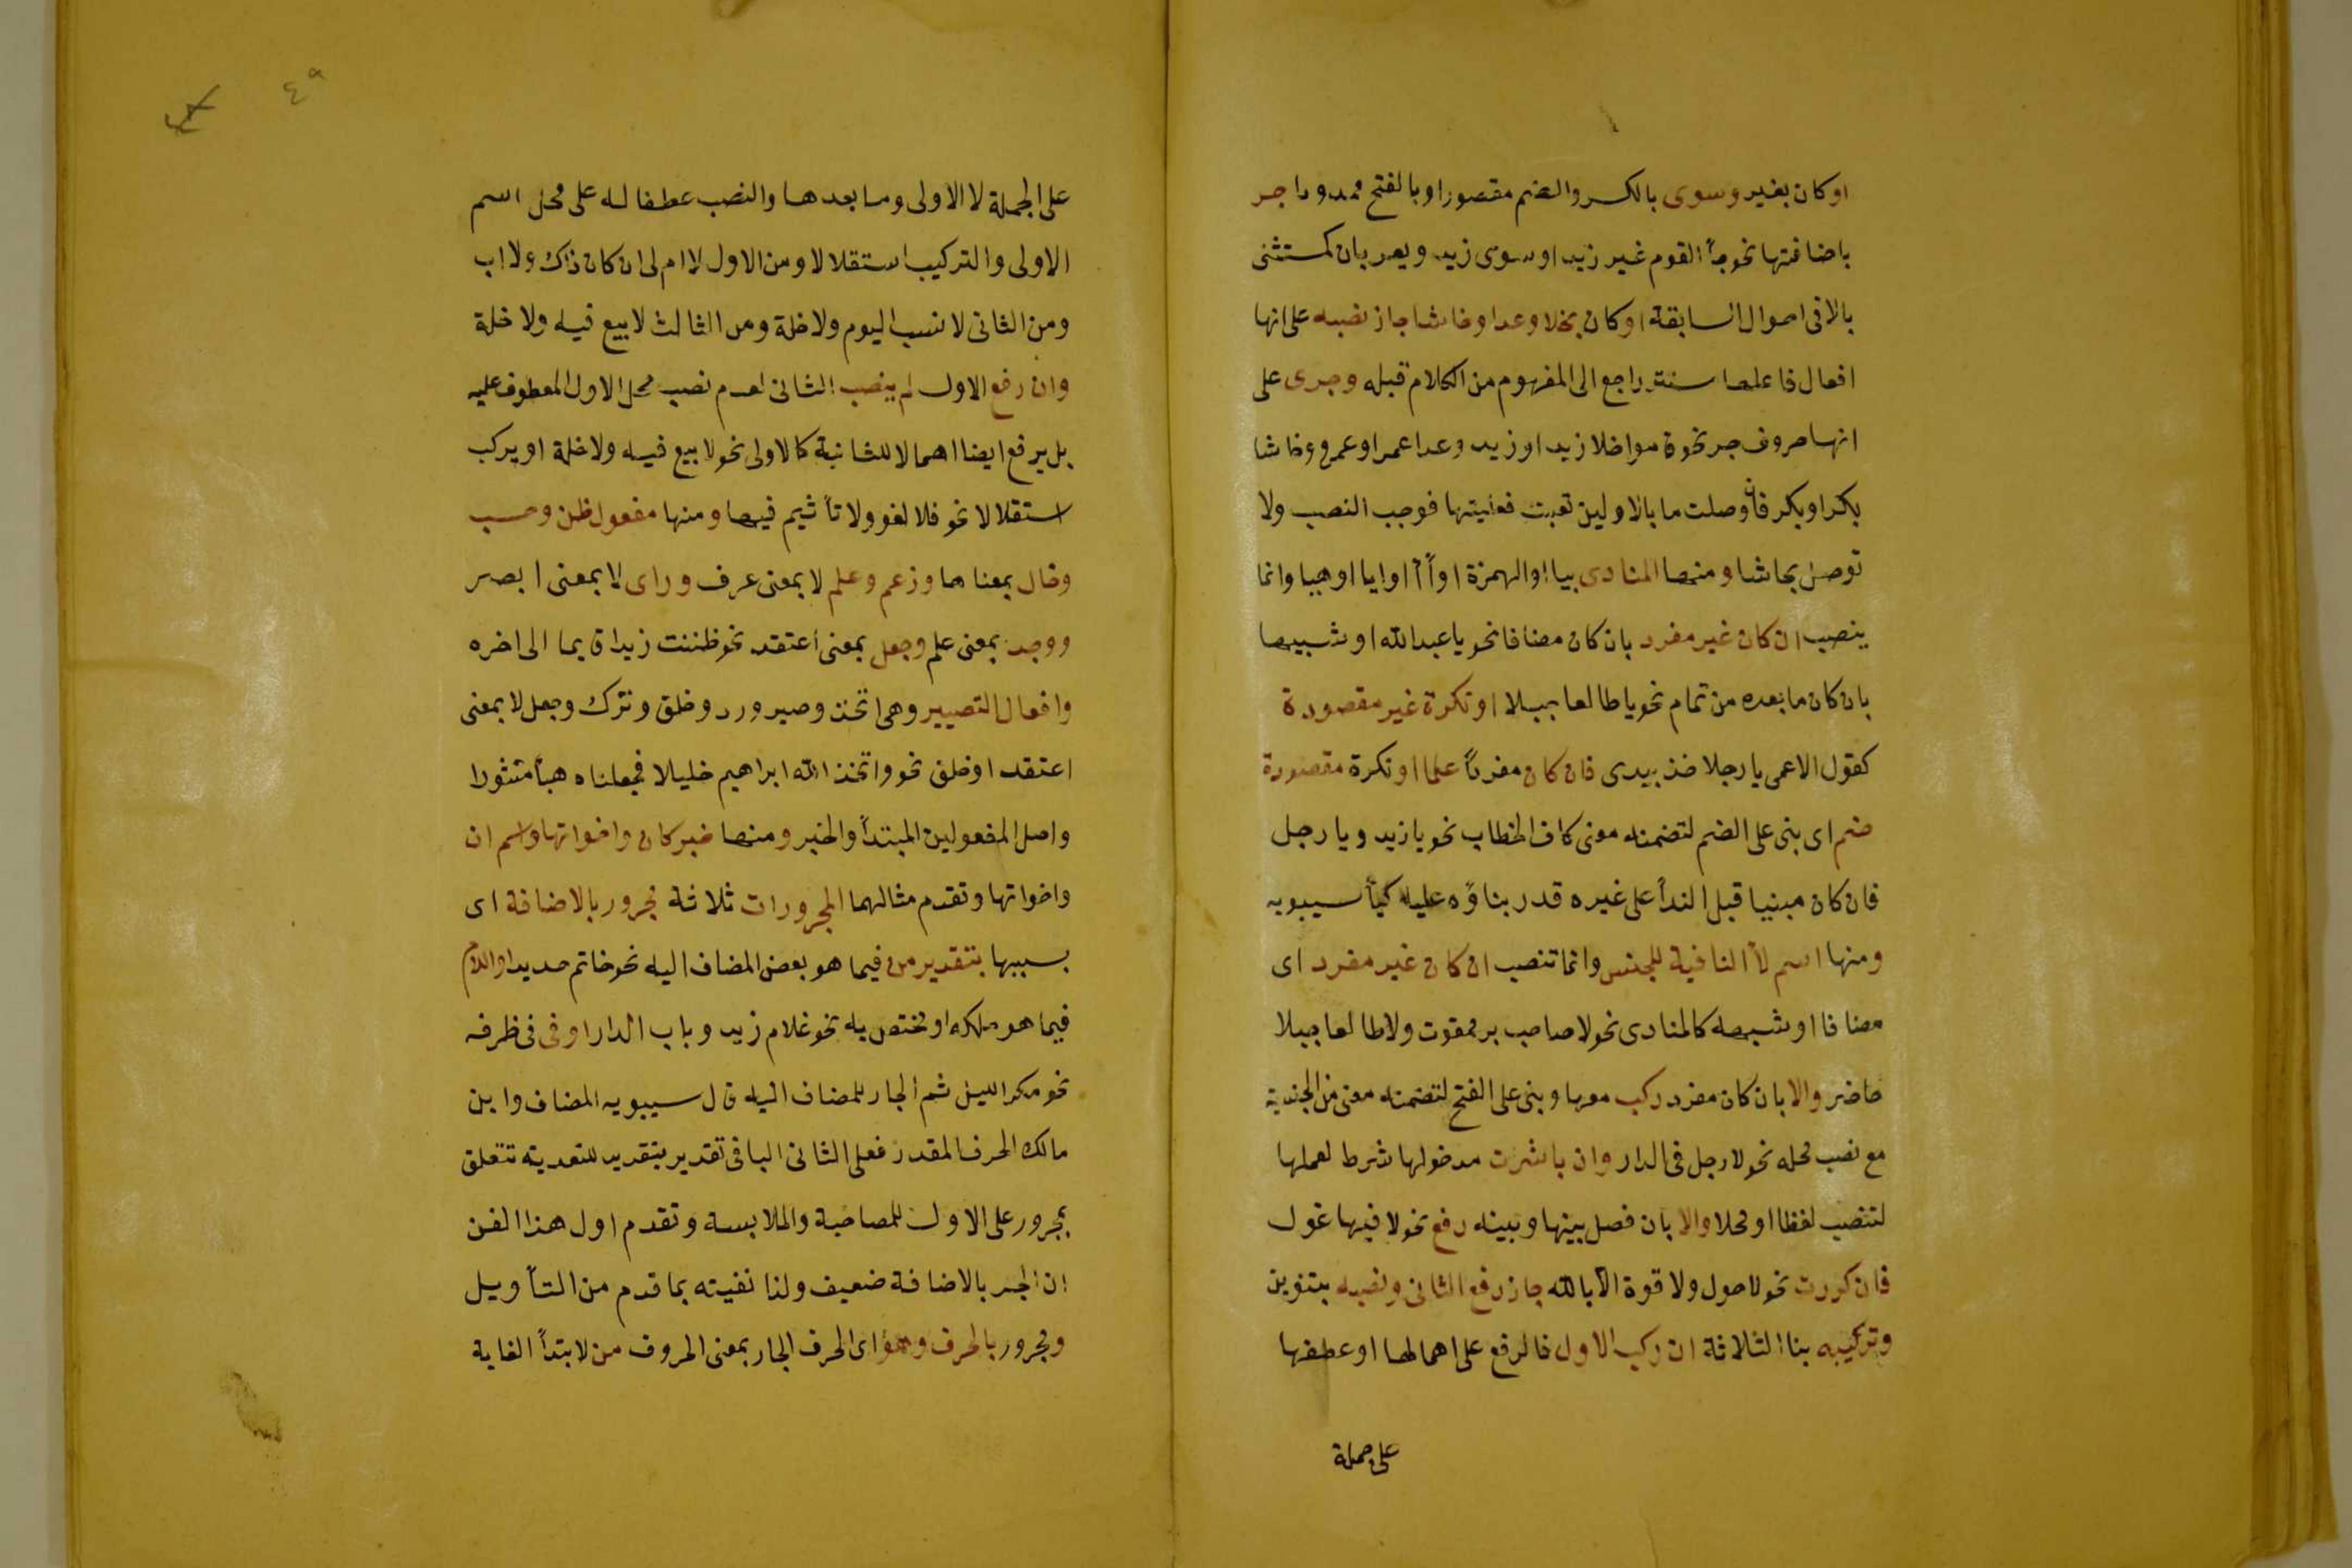 او كان بغير وسوى بالكسر والضم مقصورا وبالفتح ممدودا جر
باضافتها نحو جأ القوم غير زيد او سوى زيد ويعربان كمستثنى
بالا فى احوال السابقة او كان بخلا وعدا وحاشا جاز نصبه على انها
افعال فاعلها مستتر راجع الى المفهوم من الكلام قبله وجرى على
انها حروف جر نحو قاموا خلا زيدا وزيد وعدا عمرا وعمرو وحاشا
بكرا وبكر فان وصلت ما بالاولين تعينت فعليتها فوجب النصب ولا
توصل بحاشا ومنها المنادى بيا او الهمزة او أ آ او ايا او هيا وانما
ينصب ان كان غير مفرد بان كان مضافا نحو يا عبد الله او شبيها
بان كان ما بعده من تمام نحو يا طالعا جبلا او نكرة غير مقصودة
كقول الاعمى يا رجلا خذ بيدى فان كان مفرداً علما او نكرة مقصودة
ضم اى بنى على الضم لتضمنه معنى كاف الخطاب نحو يا زيد ويا رجل
فان كان مبنيا قبل الندأ على غيره قدر بناؤه عليه كيأ سيبويه
ومنها اسم لا النافية للجنس وانما تنصب ان كان غير مفرد اى
مضافا او شبهه كالمنادى نحو لا صاحب بر ممقوت ولا طالعا جبلا
حاضر والا بان كان مفرد ركب معها وبنى على الفتح لتضمنه معنى من الجنسية
مع نصب محله نحو لا رجل فى الدار وان باشرت مدخولها شرط لعملها
لتنصب لفظا او محلا والا بان فصل بينها وبينه رفع نحو لا فيها غول
فان كررت نحو لا حول ولا قوة الا بالله جاز رفع الثانى ونصبه بتنوين
وتركيبه بنا الثلاثة ان ركب الاول فالرفع على اهمالها او عطفها
على جملة
٤٩
على الجملة لا الاولى وما بعدها والنصب عطفا له على محل اسم
الاولى والتركيب استقلالا ومن الاول لا ام لى ان كان ذاك ولا اب
ومن الثانى لا نسب اليوم ولا خلة ومن الثالث لا بيع فيه ولا خلة
وان رفع الاول لم ينصب الثانى لعدم نصب محل الاول المعطوف عليه
بل يرفع ايضا اهمالا للثانية كالاولى نحو لا بيع فيه ولا خلة او يركب
استقلالا نحو فلا لغو ولا تأثيم فيها ومنها مفعول ظن وحسب
وخال بمعناها وزعم وعلم لا بمعنى عرف وراى لا بمعنى ابصر
ووجد بمعنى علم وجعل بمعنى اعتقد نحو ظننت زيدا قايما الى اخره
وافعال التصيير وهى اتخذ وصير ورد وخلق وترك وجعل لا بمعنى
اعتقد او خلق نحو واتخذ الله ابراهيم خليلا فجعلناه هبأ منثورا
واصل المفعولين المبتدأ والخبر ومنها خبر كان واخواتها واسم ان
واخواتها وتقدم مثالهما المجرورات ثلاثة مجرور بالاضافة اى
بسببها بتقدير من فيما هو بعض المضاف اليه نحو خاتم حديد او اللام
فيما هو ملكه او مختص به نحو غلام زيد وباب الدار او فى فى ظرفه
نحو مكر الليل ثم الجار للمضاف اليه قال سيبويه المضاف وابن
مالك الحرف المقدر فعلى الثانى البا فى تقدير بتقدير للتعدية تتعلق
بمجرور على الاول للمصاحبة والملابسة وتقدم اول هذا الفن
ان الجر بالاضافة ضعيف ولذا نفيته بما قدم من التأويل
ومجرور بالحرف وهو اى الحرف الجار بمعنى الحروف من لابتدأ الغاية